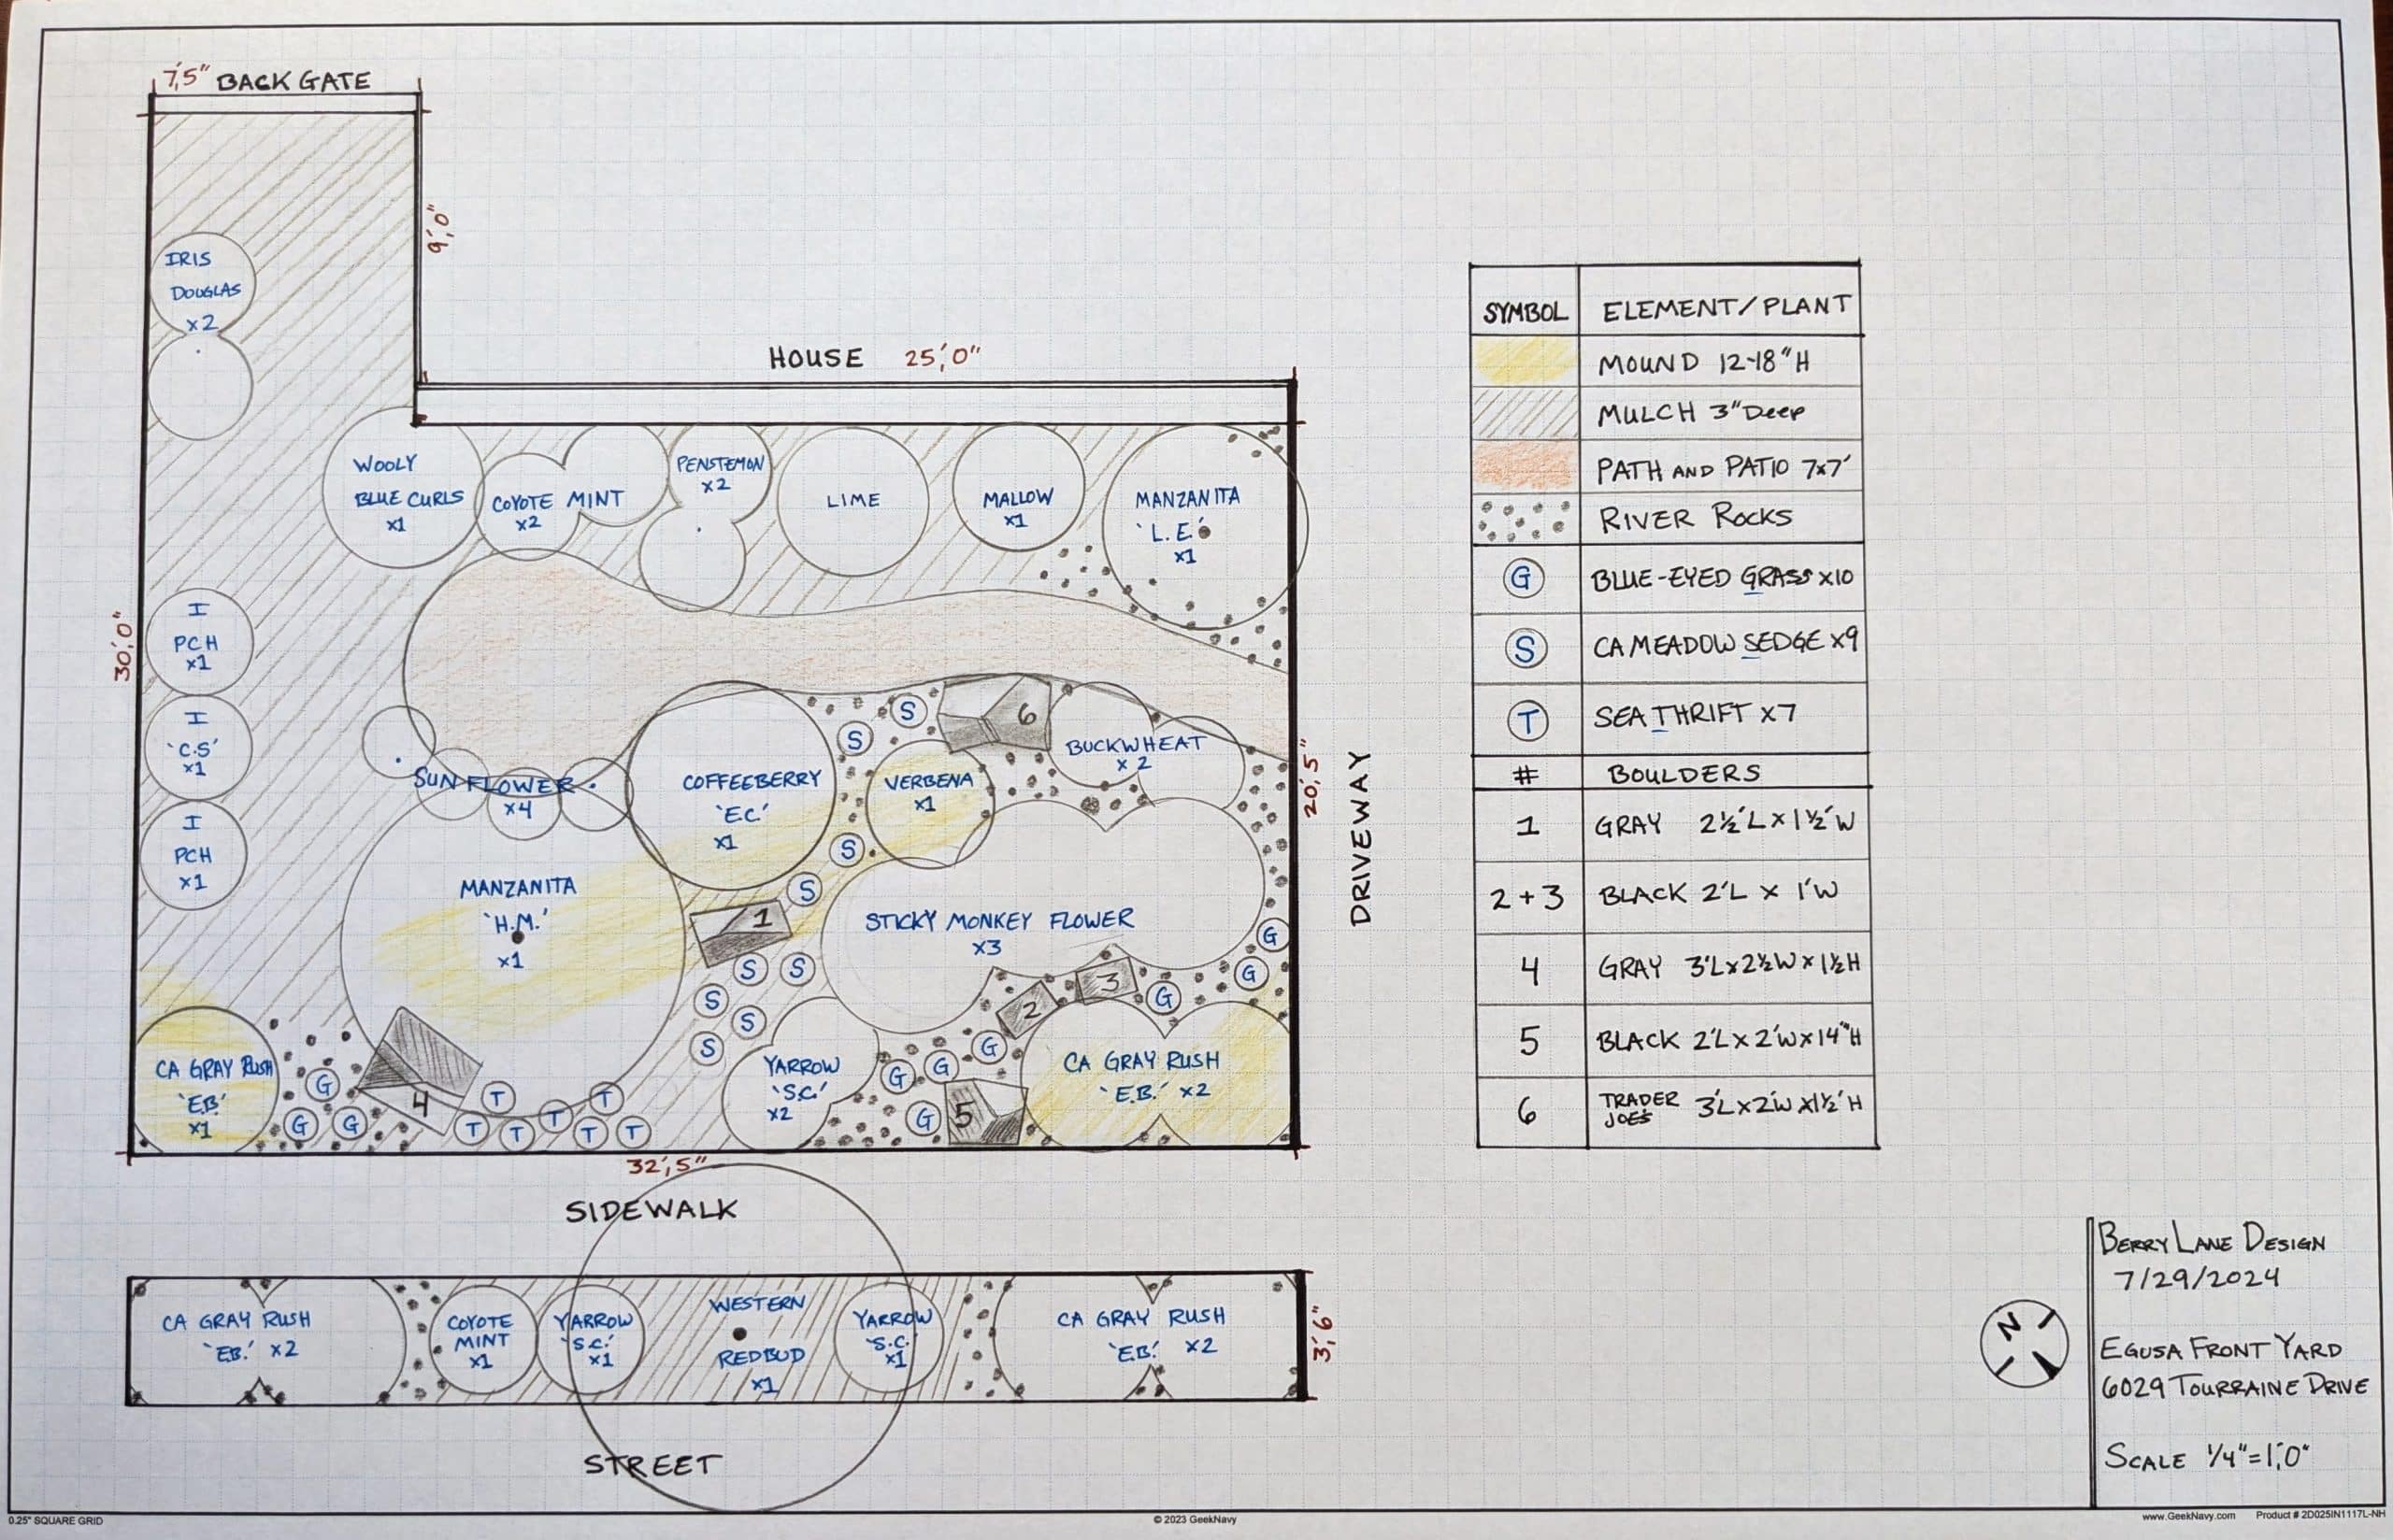 7',5" BACK GATE
9',0"
IRIS
DOUGLAS
x2
HOUSE 25',0"
WOOLY
BLUE CURLS
x1
COYOTE MINT
x2
PENSTEMON
x2
LIME
MALLOW
x1
MANZANITA
'L.E.'
x1
30',0"
I
PCH
x1
I
'C.S'
x1
I
PCH
x1
SUNFLOWER
x4
COFFEEBERRY
'E.C.'
x1
S
S
6
VERBENA
x1
BUCKWHEAT
x 2
20',5"
DRIVEWAY
S
S
MANZANITA
'H.M.'
x1
1
STICKY MONKEY FLOWER
x3
S
S
S
S
S
G
G
G
3
2
CA GRAY RUSH
'E.B.'
x1
G
G
G
4
T
T
T
T
T
T
T
YARROW
'S.C.'
x2
G
G
G
G
5
CA GRAY RUSH
'E.B.' x2
32',5"
SIDEWALK
CA GRAY RUSH
'E.B.' x2
COYOTE
MINT
x1
YARROW
'S.C.'
x1
WESTERN
REDBUD
x1
YARROW
'S.C.'
x1
CA GRAY RUSH
'E.B.' x2
3',6"
STREET
SYMBOL ELEMENT/PLANT
MOUND 12-18" H
MULCH 3" Deep
PATH AND PATIO 7x7'
RIVER ROCKS
G BLUE-EYED GRASS x10
S CA MEADOW SEDGE x9
T SEA THRIFT x7
# BOULDERS
1 GRAY 2½'L x 1½'W
2+3 BLACK 2'L x 1'W
4 GRAY 3'L x 2½'W x 1½'H
5 BLACK 2'L x 2'W x 14"H
6 TRADER JOE'S 3'L x 2'W x 1½'H
N
BERRY LANE DESIGN
7/29/2024
EGUSA FRONT YARD
6029 TOURRAINE DRIVE
SCALE 1/4"=1',0"
0.25" SQUARE GRID
© 2023 GeekNavy
www.GeekNavy.com Product # 2D025IN1117L-NH